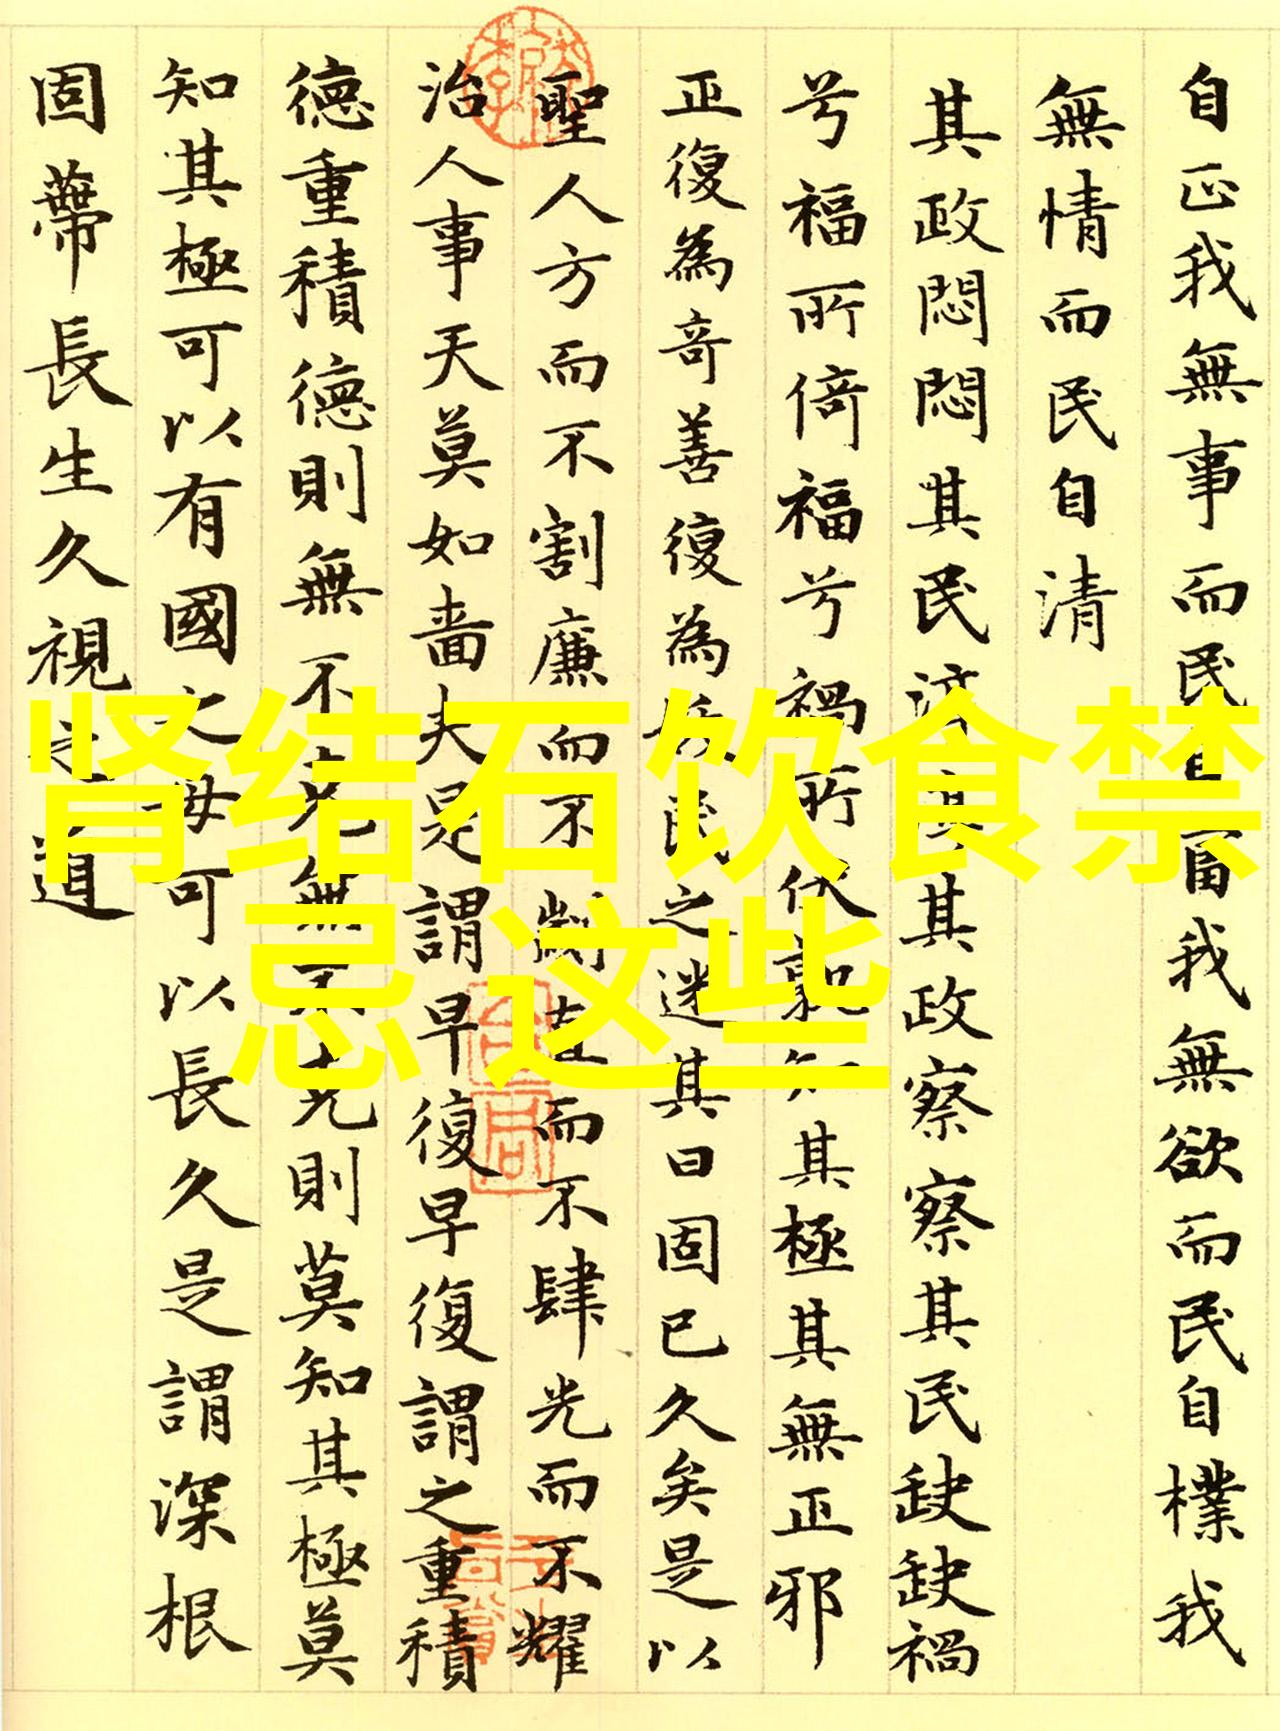 自正我無事而民自富我無欲而民自樸我
無情而民自清
其政悶悶其民淳其政察察其民缺缺禍
兮福所倚福兮禍所伏孰知其極其無正邪
正復為奇善復為妖民之迷其日固已久矣是以
聖人方而不割廉而不劌直而不肆光而不耀
治人事天莫如嗇夫是謂早復早復謂之重積
德重積德則無不克無不克則莫知其極莫
知其極可以有國之母可以長久是謂深根
固蔕長生久視之道
肾结石饮食禁
忌 这些